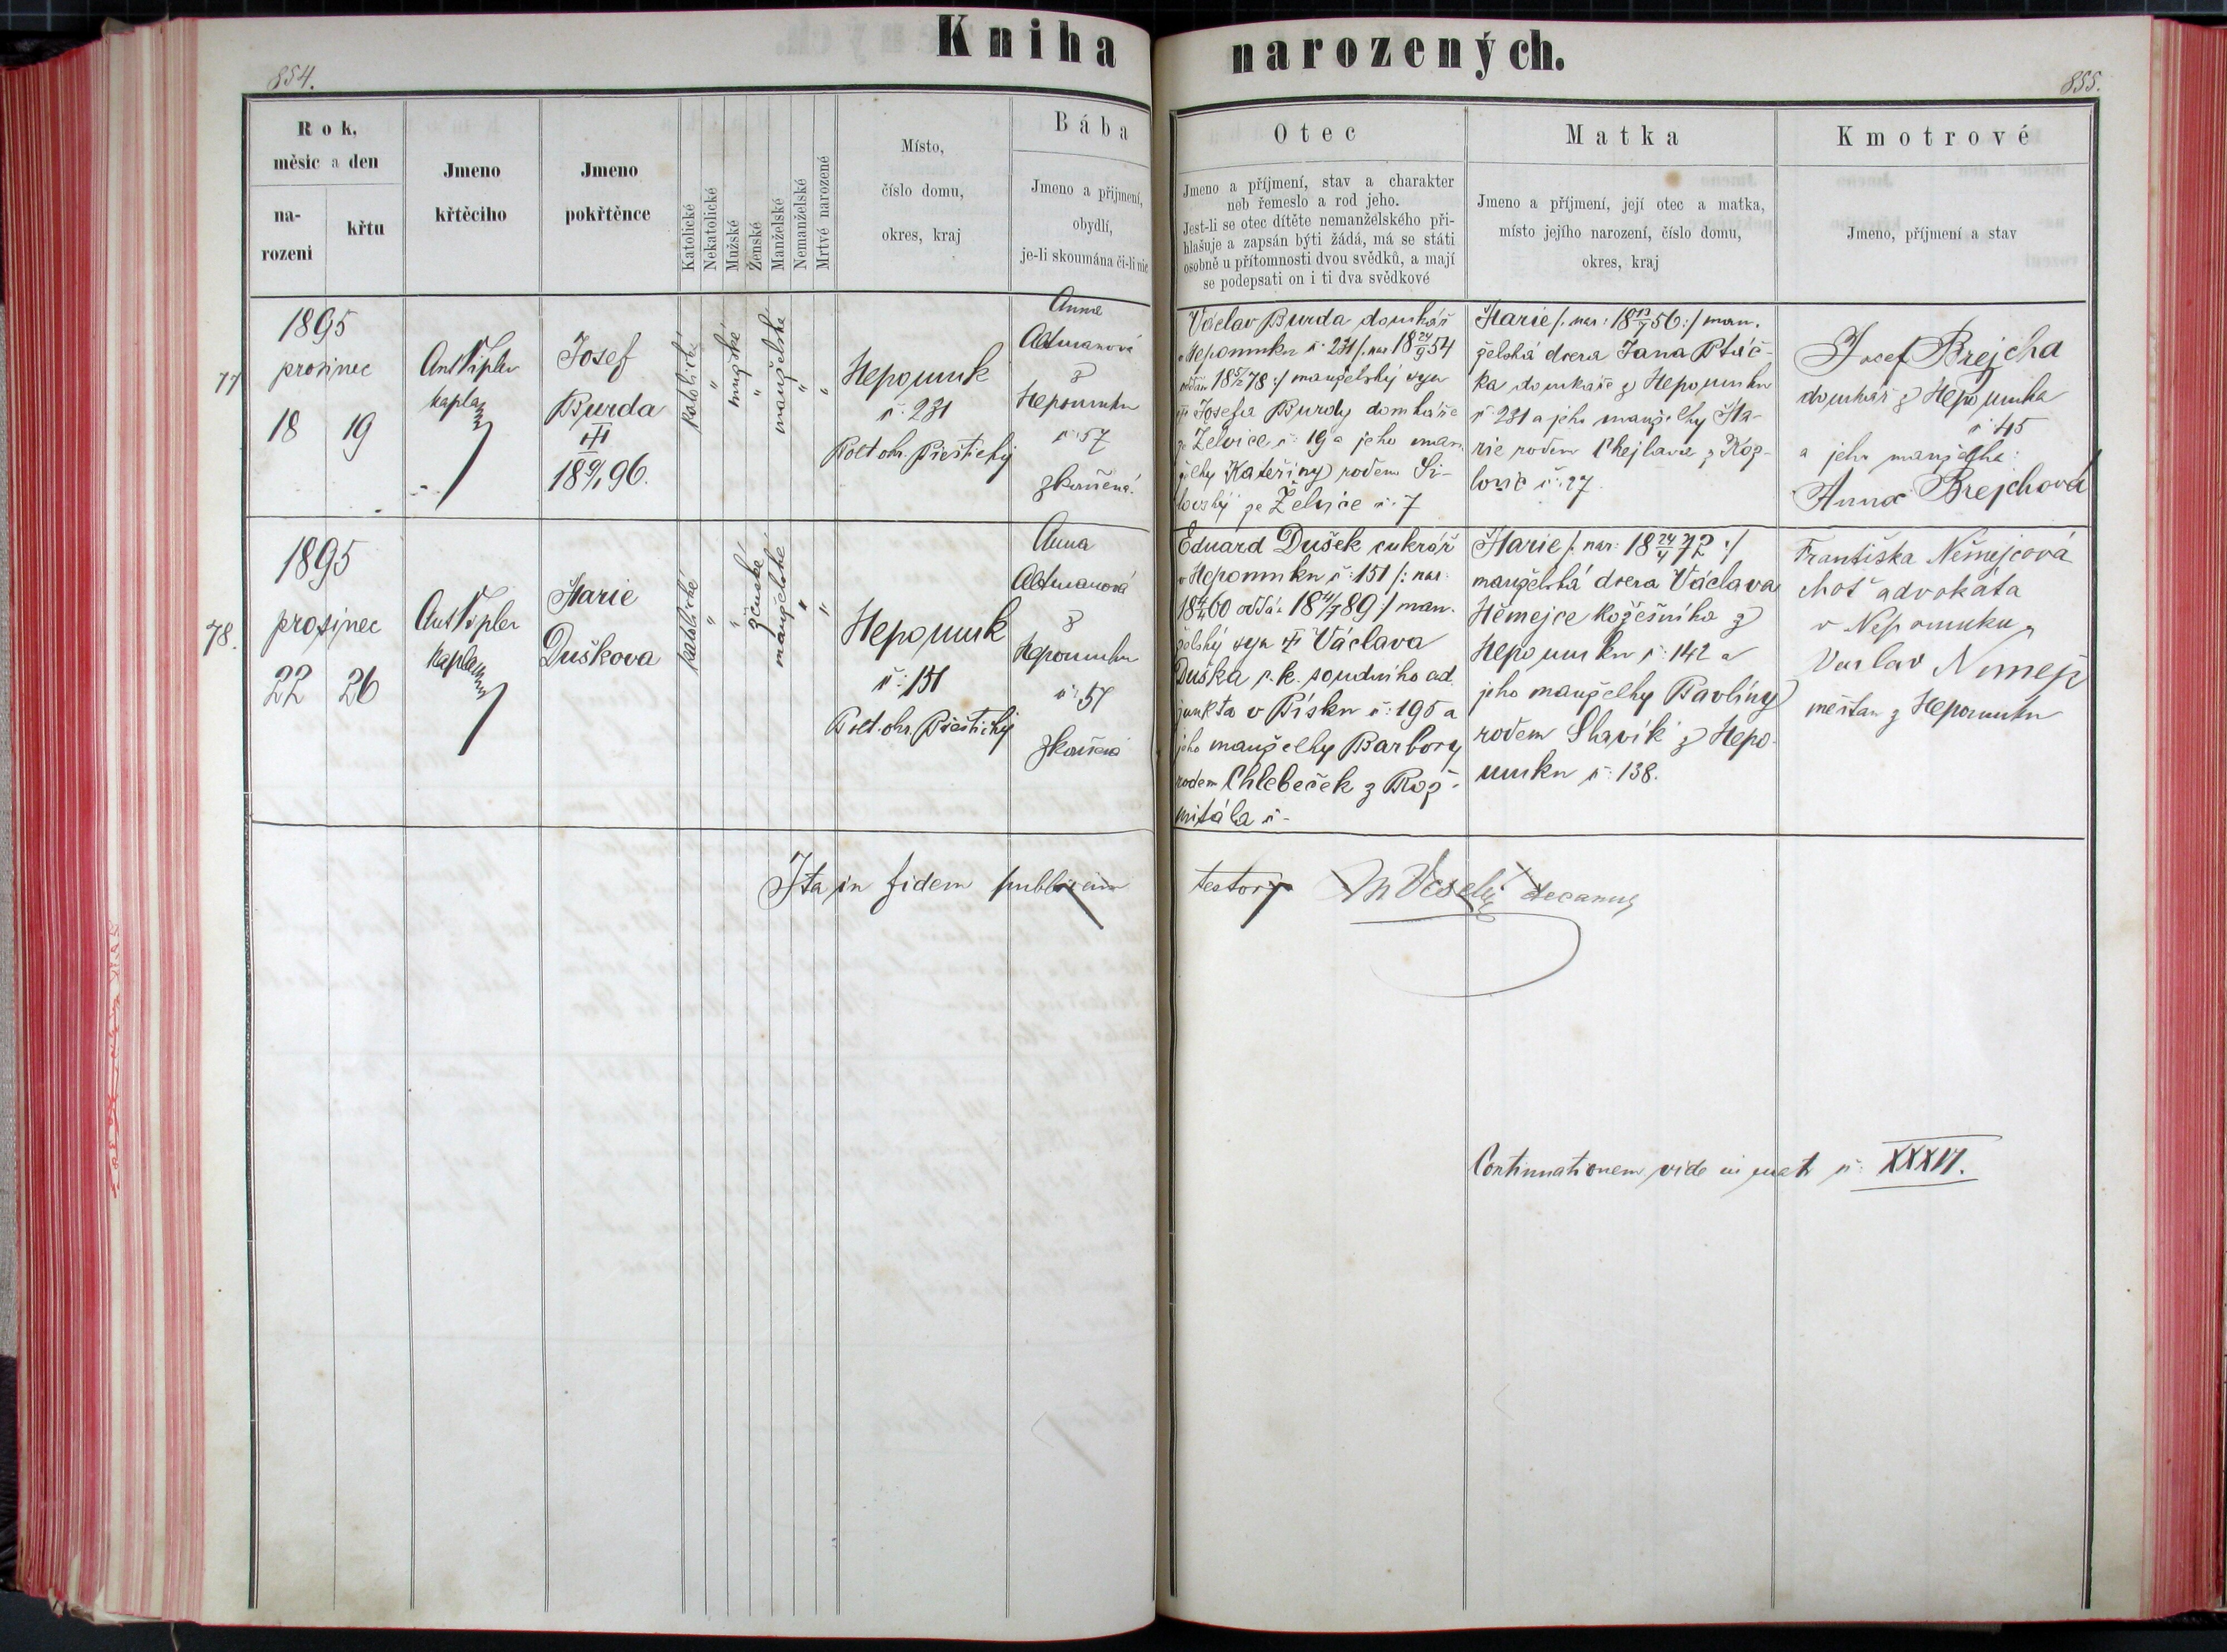 Kniha narozených.
854.
855.
Rok,
měsic a den
na-
rozeni
křtu
Jmeno
křtěciho
Jmeno
pokřtěnce
Katolické
Nekatolické
Mužské
Ženské
Manželské
Nemanželské
Mrtvé narozené
Místo,
číslo domu,
okres, kraj
Bába
Jmeno a přijmení,
obydlí,
je-li skoumána či-li nic
Otec
Jmeno a příjmení, stav a charakter
neb řemeslo a rod jeho.
Jest-li se otec dítěte nemanželského při-
hlašuje a zapsán býti žádá, má se státi
osobně u přítomnosti dvou svědků, a mají
se podepsati on i ti dva svědkové
Matka
Jmeno a příjmení, její otec a matka,
místo jejího narození, číslo domu,
okres, kraj
Kmotrové
Jmeno, příjmení a stav
77
1895
prosinec
18 19
Ant Tipler
kaplan
Josef
Burda
18 9/1 96.
katolické
"
mužské
"
manželské
"
"
Nepomuk
č: 231
Polt. okr. Přeštický
Anna
Altmanová
z
Nepomuku
č: 57
zkoušená.
Václav Burda domkář
v Nepomuku č: 231 /: nar 18 24/9 54
18 5/2 78 :/ manželský syn
Josefa Burdy domkáře
ze Želvice č: 19 a jeho man-
želky Kateřiny rodem
ze Želvice č: 7
Marie /: nar: 18 13/9 56 :/ man-
želská dcera Jana Ptáč-
ka domkáře z Nepomuku
č: 231 a jeho manželky Ma-
rie rodem Chejlava z Koz-
lovic č: 27.
Josef Brejcha
domkář z Nepomuka
č: 45
a jeho manželka:
Anna Brejchová
78.
1895
prosinec
22 26
Ant Tipler
kaplan
Marie
Duškova
katolické
"
"
ženské
manželské
"
"
Nepomuk
č: 151
Polt. okr. Přeštický
Anna
Altmanová
z
Nepomuku
č: 57
zkoušená
Eduard Dušek cukrář
v Nepomuku č: 151 /: nar:
18 4/4 60 oddá: 18 4/7 89 :/ man-
želský syn Václava
Duška c. k. soudního ad-
junkta v Písku č: 195 a
jeho manželky Barbory
rodem Chlebeček z Rož-
mitála č -
Marie /: nar: 18 24/4 72 :/
manželská dcera Václava
Němejce kožešníka z
Nepomuku č: 142 a
jeho manželky Pavlíny
rodem Slavík z Nepo-
muku č: 138.
Františka Němejcová
choť advokáta
v Nepomuku
Vaclav Nemejc
měšťan z Nepomuku
Ita in fidem publicam testor M Veselý decanus
Continuationem vide in matr. č: XXXVI.